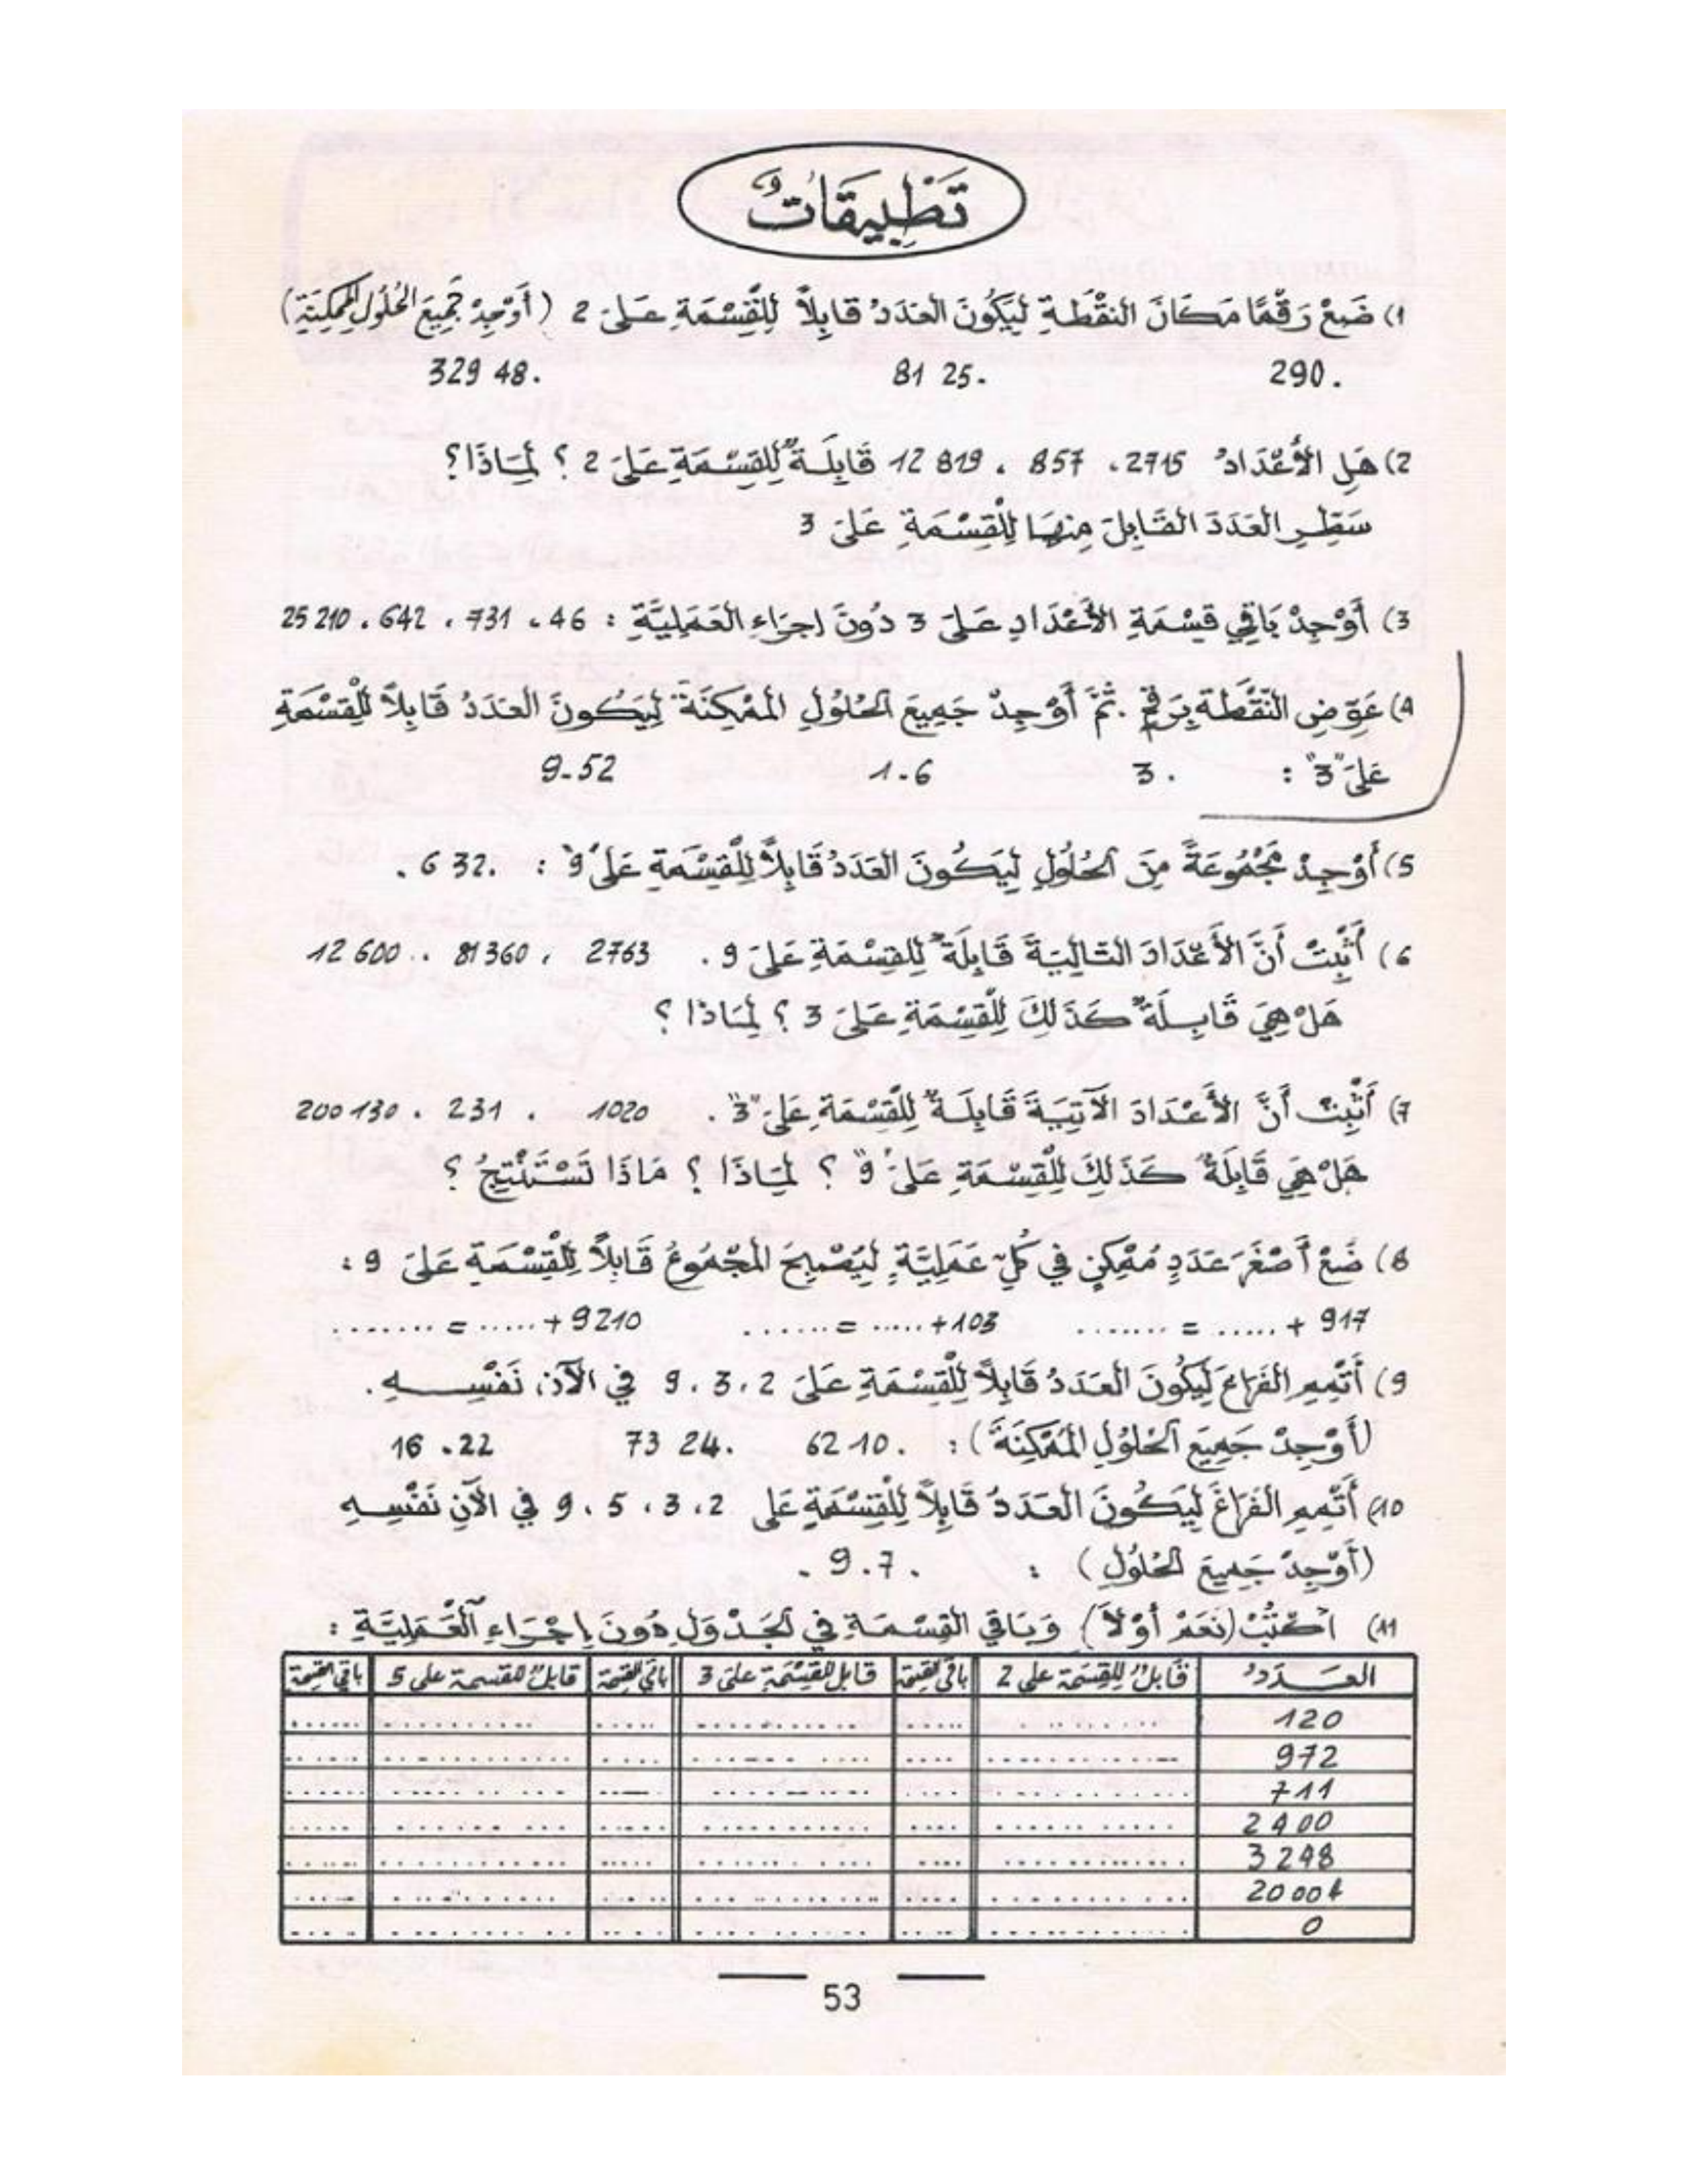 تَطْبِيقَاتٌ
1) ضَعْ رَقْمًا مَكَانَ النقْطَةِ لِيَكُونَ العَدَدُ قابِلاً لِلْقِسْمَةِ عَلَى 2 (أَوْجِدْ جَمِيعَ الحُلُولِ المُمْكِنَةِ)
290. 81 25. 329 48.
2) هَلِ الأَعْدَادُ 2715 ، 857 ، 12 819 قَابِلَةٌ لِلقِسْمَةِ عَلَى 2 ؟ لِمَاذَا؟
سَطِّرِ العَدَدَ القَابِلَ مِنهَا لِلْقِسْمَةِ عَلَى 3
3) أَوْجِدْ بَاقِي قِسْمَةِ الأَعْدَادِ عَلَى 3 دُونَ إجرَاءِ العَمَلِيَّةِ : 46 ، 731 ، 642 ، 25 210
4) عَوِّضِ النّقْطَةَ بِرَقْمٍ . ثُمَّ أَوْجِدْ جَمِيعَ الحُلُولِ المُمْكِنَةَ لِيَكُونَ العَدَدُ قَابِلاً لِلْقِسْمَةِ
عَلَى "3" : 3 . 1.6 9.52
5) أَوْجِدْ مَجْمُوعَةً مِنَ الحُلُولِ لِيَكُونَ العَدَدُ قَابِلاً لِلْقِسْمَةِ عَلَى "9" : . 6 32.
6) أَثْبِتْ أَنَّ الأَعْدَادَ التَالِيَةَ قَابِلَةٌ لِلقِسْمَةِ عَلَى 9 . 2763 ، 81 360 ، 12 600
هَلْ هِيَ قَابِلَةٌ كَذَلِكَ لِلْقِسْمَةِ عَلَى 3 ؟ لِمَاذا ؟
7) أَثْبِت أَنَّ الأَعْدَادَ الآتِيَةَ قَابِلَةٌ لِلقِسْمَةِ عَلَى "3" . 1020 ، 231 ، 200 130
هَلْ هِيَ قَابِلَةٌ كَذَلِكَ لِلْقِسْمَةِ عَلَى "9" ؟ لِمَاذَا ؟ مَاذَا تَسْتَنْتِجُ ؟
8) ضَعْ أَصْغَرَ عَدَدٍ مُمْكِنٍ فِي كُلِّ عَمَلِيَّةٍ لِيُصْبِحَ المَجْمُوعُ قَابِلاً لِلْقِسْمَةِ عَلَى 9 :
917 + ..... = ........ 103+ ..... = ....... 9210 + ..... = ........
9) أَتْمِمِ الفَرَاغَ لِيَكُونَ العَدَدُ قَابِلاً لِلْقِسْمَةِ عَلَى 2 ، 3 ، 9 فِي الآنِ نَفْسِهِ .
(أَوْجِدْ جَمِيعَ الحُلُولِ المُمْكِنَةَ) : 62 10. 73 24. 16 .22
10) أَتْمِمِ الفَرَاغَ لِيَكُونَ العَدَدُ قَابِلاً لِلْقِسْمَةِ عَلى 2 ، 3 ، 5 ، 9 في الآنِ نَفْسِهِ
(أَوْجِدْ جَمِيعَ الحُلُولِ) : . 9.7 .
11) اكْتُبْ (نَعَمْ أَوْ لاَ) وَبَاقِي القِسْمَةِ فِي الجَدْوَلِ دُونَ إِجْرَاءِ العَمَلِيَّةِ :
العَدَدُ قَابلٌ لِلقِسْمَة على 2 باقي القسمة قابل للقِسْمَةِ على 3 باقي القسمة قابلٌ للقسمة على 5 باقي القسمة
120
972
711
2400
3 248
0
53